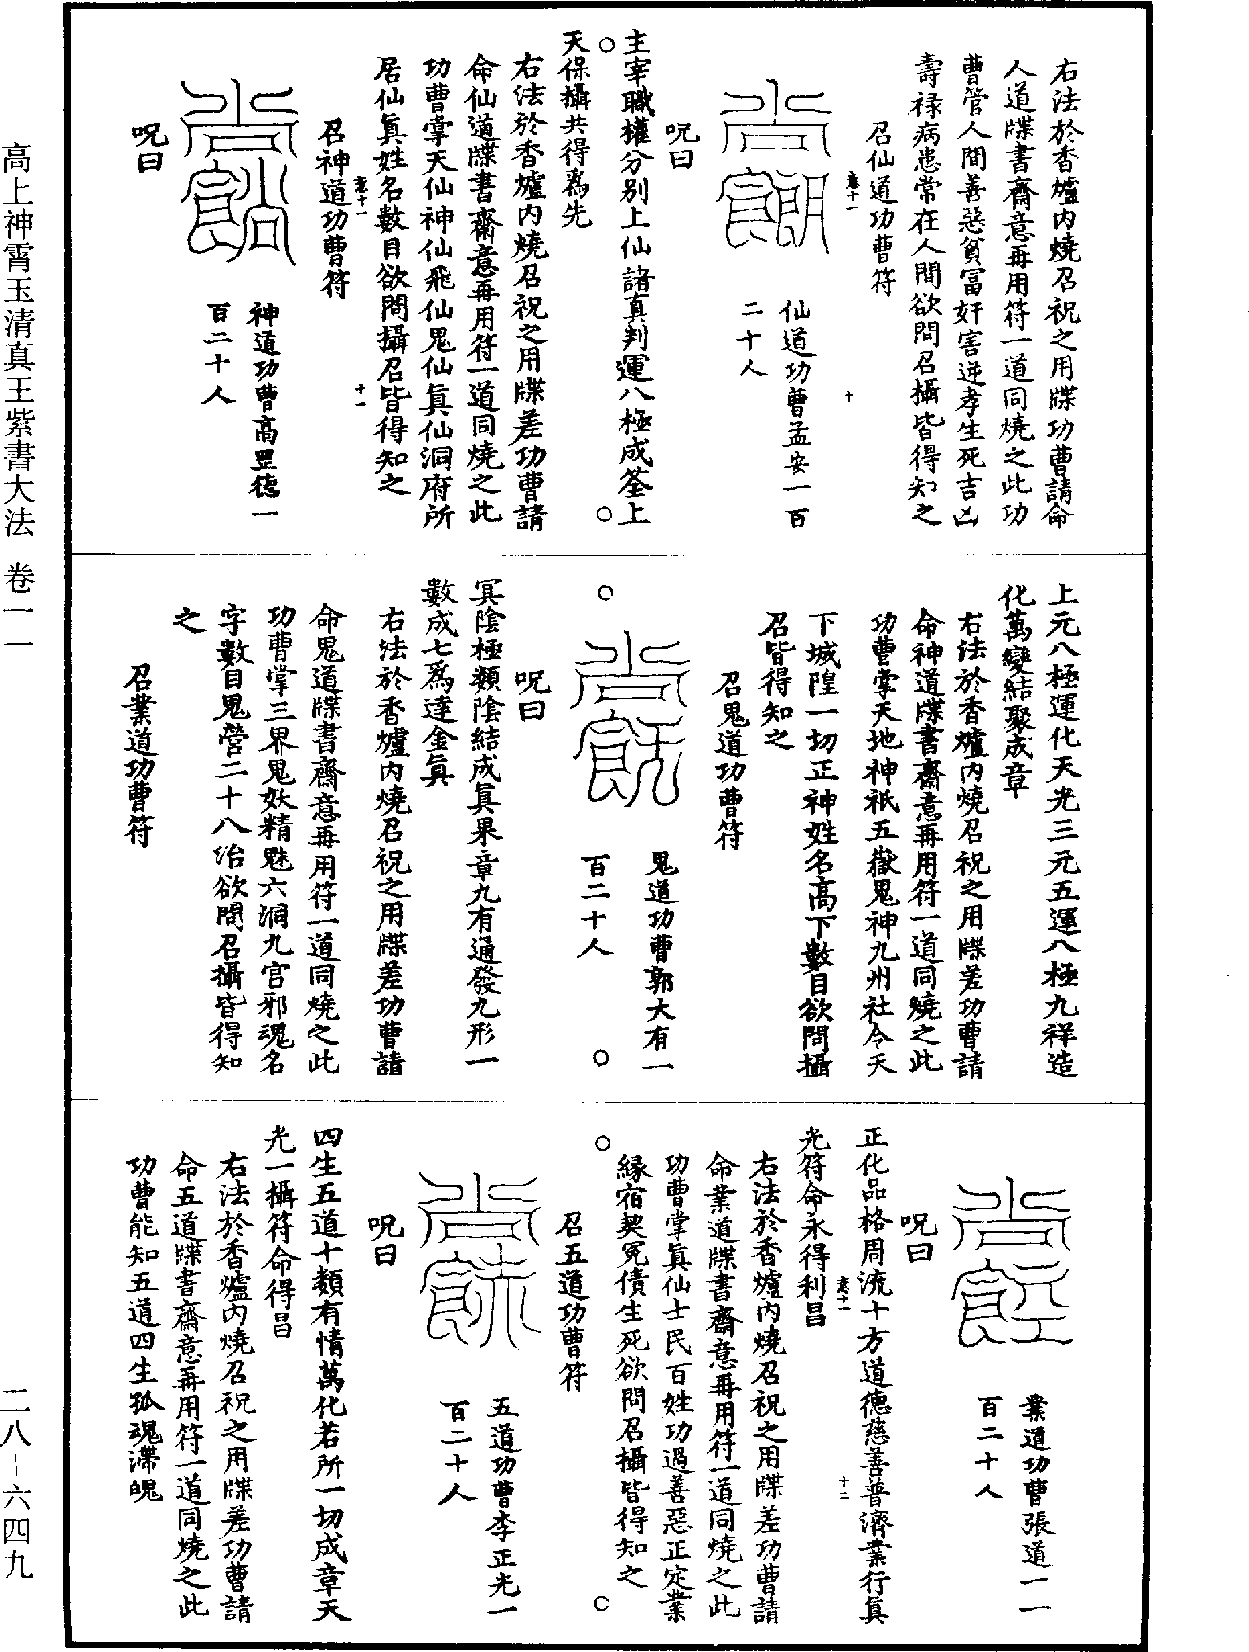 右法於香爐內燒召祝之用牒功曹請命
人道牒書齋意再用符一道同燒之此功
曹管人間善惡貧富奸害逆孝生死吉凶
壽祿病患常在人間欲問召攝皆得知之
召仙道功曹符
卷十一
十
仙道功曹孟安一百
二十人
呪曰
主宰職權分別上仙諸真判運八極成筌上
天保攝共得為先
右法於香爐內燒召祝之用牒差功曹請
命仙道牒書齋意再用符一道同燒之此
功曹掌天仙神仙飛仙鬼仙眞仙洞府所
居仙眞姓名數目欲問攝召皆得知之
卷十一
十一
召神道功曹符
神道功曹高罡德一
百二十人
呪曰
上元八極運化天光三元五運八極九祥造
化萬變結聚成章
右法於香爐內燒召祝之用牒差功曹請
命神道牒書齋意再用符一道同燒之此
功曹掌天地神祇五嶽鬼神九州社令天
下城隍一切正神姓名高下數目欲問攝
召皆得知之
召鬼道功曹符
鬼道功曹郭大有一
百二十人
呪曰
冥陰極類陰結成眞果章九有通發九形一
數成七為達金眞
右法於香爐內燒召祝之用牒差功曹請
命鬼道牒書齋意再用符一道同燒之此
功曹掌三界鬼妖精魅六洞九宮邪魂名
字數目鬼營二十八治欲問召攝皆得知
之
召業道功曹符
業道功曹張道一一
百二十人
呪曰
正化品格周流十方道德慈善普濟業行眞
光符命永得利昌
卷十一
十二
右法於香爐內燒召祝之用牒差功曹請
命業道牒書齋意再用符一道同燒之此
功曹掌眞仙士民百姓功過善惡正定業
緣宿契冤債生死欲問召攝皆得知之
召五道功曹符
五道功曹李正光一
百二十人
呪曰
四生五道十類有情萬化若所一切成章天
光一攝符命得昌
右法於香爐內燒召祝之用牒差功曹請
命五道牒書齋意再用符一道同燒之此
功曹能知五道四生孤魂滯魄
高上神霄玉清真王紫書大法 卷一一
二八-六四九